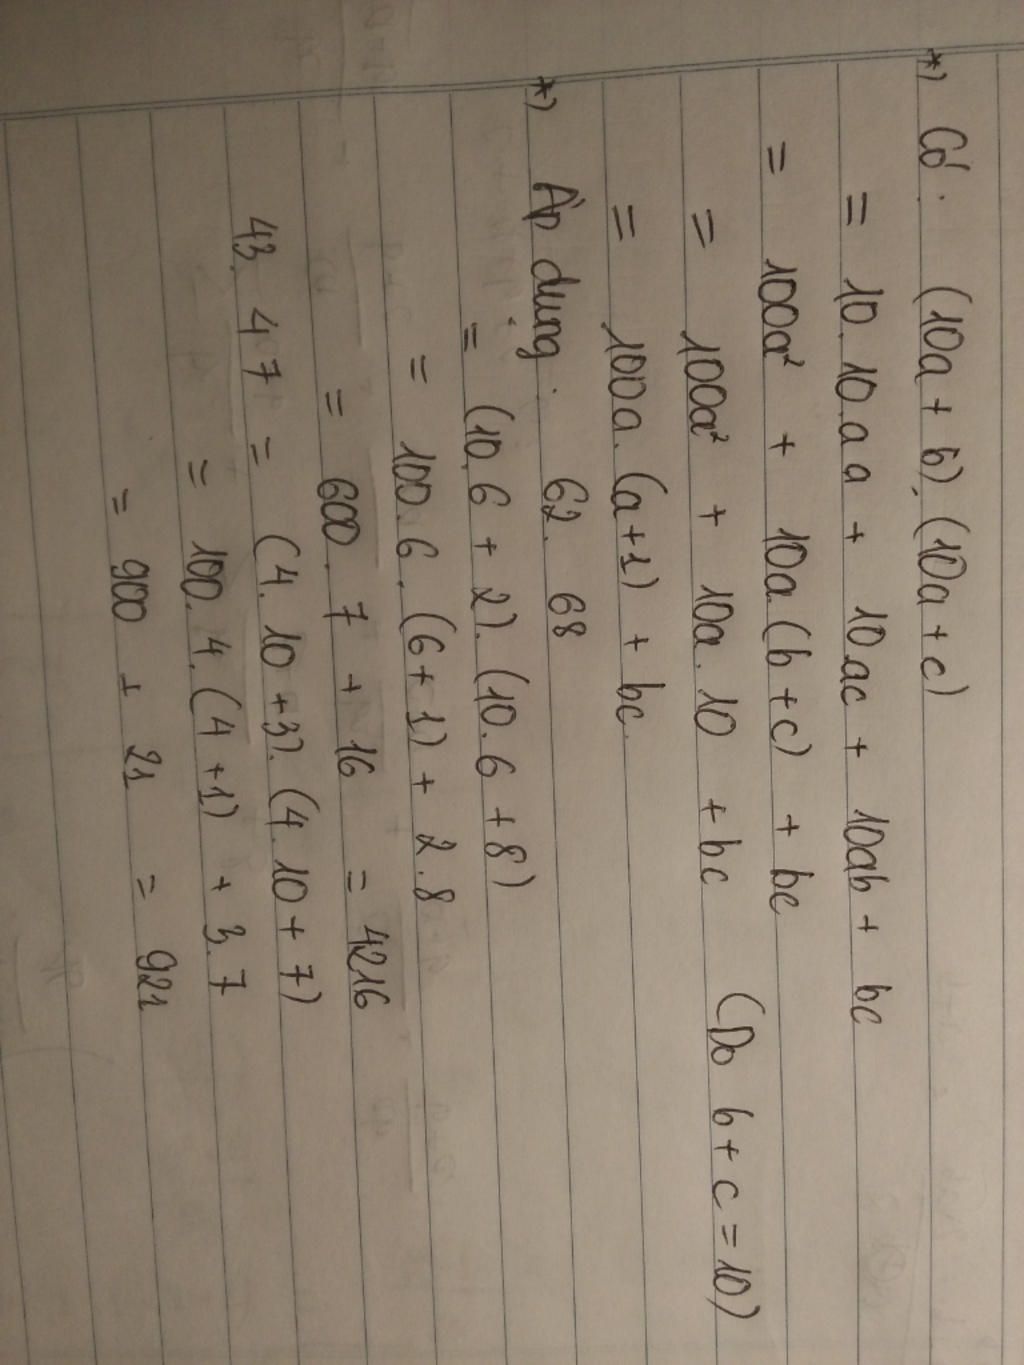 *) Có: (10a + b).(10a + c)
= 10.10.a a + 10ac + 10ab + bc
= 100a² + 10a.(b + c) + bc
= 100a² + 10a.10 + bc (Do b + c = 10)
= 100a.(a+1) + bc.
*) Áp dụng: 62. 68
= (10.6 + 2).(10.6 + 8)
= 100.6.(6+1) + 2.8
= 600.7 + 16 = 4216
43. 47 = (4.10 +3).(4.10 + 7)
= 100.4.(4 +1) + 3.7
= 900 + 21 = 921